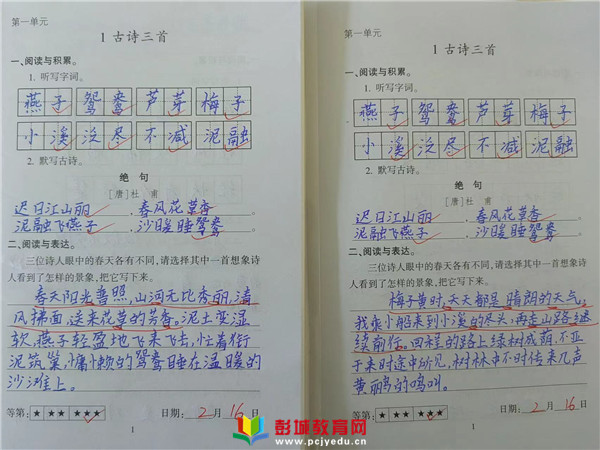 第一单元
1 古诗三首
一、阅读与积累。
1. 听写字词。
燕子 鸳鸯 芦芽 梅子
小溪 泛尽 不减 泥融
2. 默写古诗。
绝 句
[唐]杜 甫
迟日江山丽，春风花草香。
泥融飞燕子，沙暖睡鸳鸯。
二、阅读与表达。
三位诗人眼中的春天各有不同，请选择其中一首想象诗
人看到了怎样的景象，把它写下来。
春天阳光普照，山河无比秀丽，清
风拂面，送来花草的芳香。泥土变湿
软，燕子轻盈地飞来飞去，忙着衔
泥筑巢，慵懒的鸳鸯睡在温暖的
沙滩上。
等第：★ ★★ ★★★ 日期：2月16日
1
第一单元
1 古诗三首
一、阅读与积累。
1. 听写字词。
燕子 鸳鸯 芦芽 梅子
小溪 泛尽 不减 泥融
2. 默写古诗。
绝 句
[唐]杜 甫
迟日江山丽，春风花草香。
泥融飞燕子，沙暖睡鸳鸯。
二、阅读与表达。
三位诗人眼中的春天各有不同，请选择其中一首想象诗
人看到了怎样的景象，把它写下来。
梅子黄时，天天都是晴朗的天气，
我乘小船来到小溪的尽头，再走山路继
续前行。回程的路上绿树成荫，不亚
于来时途中所见，树林中不时传来几声
黄鹂的鸣叫。
等第：★ ★★ ★★★ 日期：2月16日
1
彭城教育网
www.pcjyedu.cn